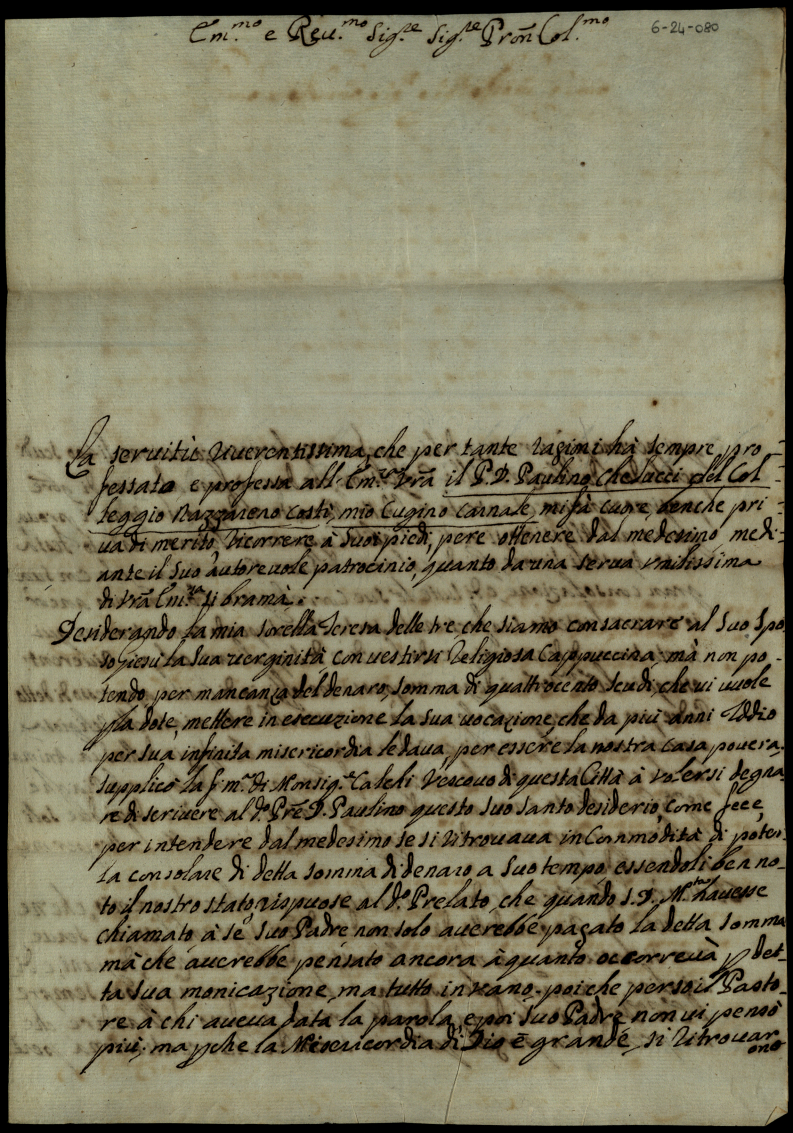 Em.mo e Reu.mo Sig.re Sig.re Pron Col.mo
6-24-080
La seruitù riuerentissima, che per tante ragioni hà sempre pro
fessata e professa all' Em.za Vrã il P. D. Paulino Chelucci del Col
leggio Nazzareno Costì, mio Cugino Carnale, mi fà cuore, benche pri
ua di merito, ricorrere à Suoi piedi, pere ottenere dal medesimo medi-
ante il Suo autoreuole patrocinio, quanto da una serua umilissima
di Vrã Em.za si bramà.
Desiderando la mia sorella Teresa delle tre che siamo consacrare al Suo Spo
so giesù la Sua uerginità con uestirsi Religiosa Cappuccina; mà non po-
tendo per mancanza del denaro, somma di quattrocento scudi, che ui uuole
p la dote, mettere in esecuzione la sua uocazione, che da più anni Iddio
per sua infinita misericordia le daua, per essere la nostra casa pouera.
Supplicò la f. m. di Monsig.re Calchi Vescouo di questa Città à volersi degna
re di scriuere al d.o Pre D. Paulino questo suo santo desiderio, come fece,
per intendere dal medesimo se si ritrouaua in Commodità di poter-
la consolare di detta somma di denaro a suo tempo, essendoli ben no-
to il nostro stato, rispuose al d.o Prelato, che quando S. D. M.tà hauesse
chiamato à sè suo Padre non solo auerebbe pagato la detta somma
mà che auerebbe pensato ancora à quanto occorreuà p det-
ta sua monicazione, ma tutto in uano. poiche perso il Pasto-
re à chi aueua data la parola, e poi suo Padre non ui pensò
più. ma pche la Misericordia di Dio è grande, si ritrouar
ono